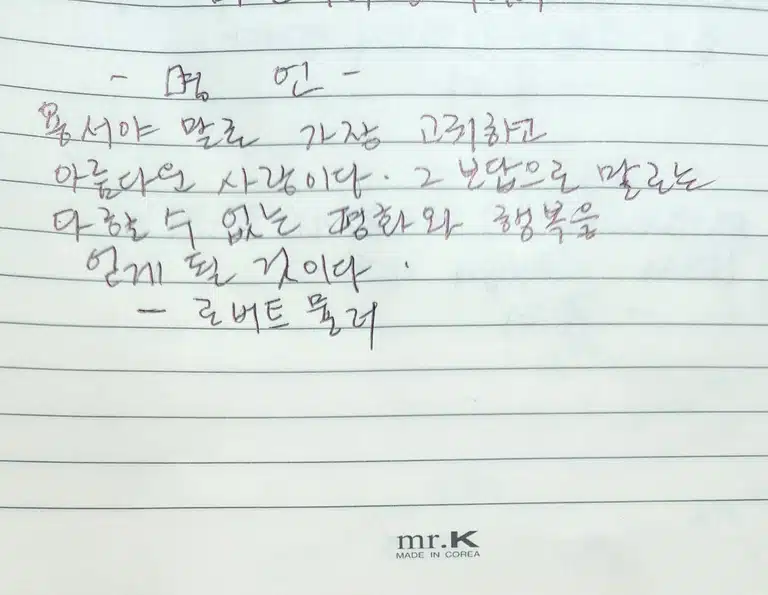 - 명 언 -
용서야 말로 가장 고귀하고
아름다운 사랑이다. 그 보답으로 말로는
다할 수 없는 평화와 행복을
얻게 될 것이다.
- 로버트 뮬러
mr.K
MADE IN COREA